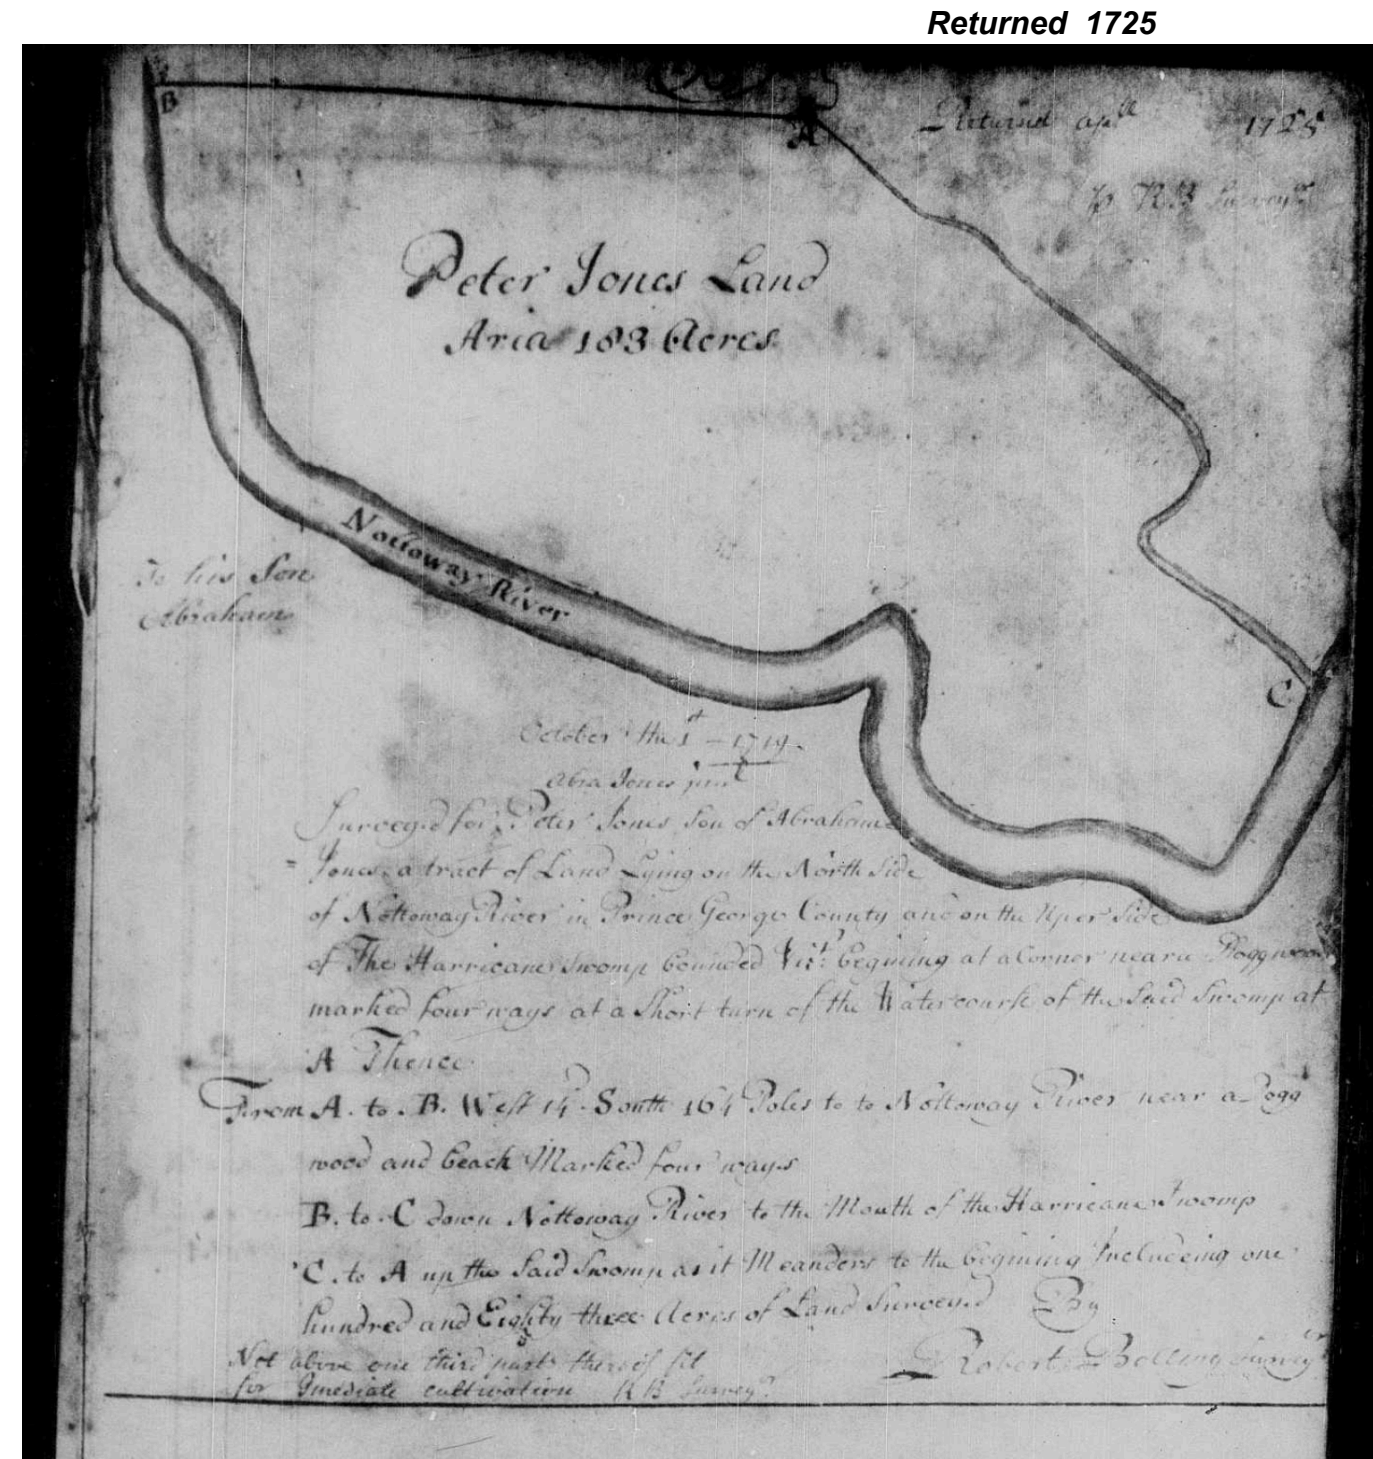 Returned 1725
B
A
Returnd apll 1725
p R B Surveyr
Peter Jones Land
Aria 183 Acres
Nottoway River
To his Son
Abraham
C
October the 1st – 1719
Abra Jones junr
Surveyed for Peter Jones Son of Abraham
= Jones a tract of Land Lying on the North Side
of Nottoway River in Prince George County and on the Uper Side
of The Harricane Swomp bounded Vizt. begining at a Corner near a Doggwood
marked four ways at a Short turn of the Watercourse of the Said Swomp at
A Thence
From A. to B. West 1d. South 164 Poles to to Nottoway River near a Dogg
wood and beach Marked four ways
B. to C down Nottoway River to the Mouth of the Harricane Swomp
C. to A up the Said Swomp as it Meanders to the begining Includeing one
hundred and Eighty three Acres of Land Surveyed By
Robert Bolling Surveyr
Not above one third part thereof fit
for Imediate cultivation R B Surveyr